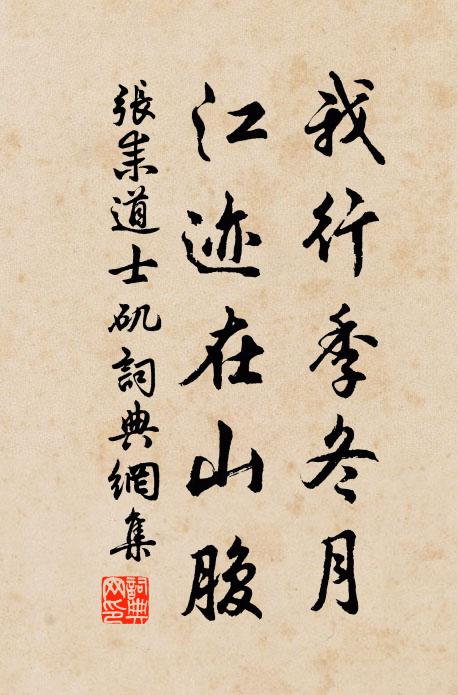 我行季冬月
江迹在山腹
張耒道士矶詞典網集
詞典
网印